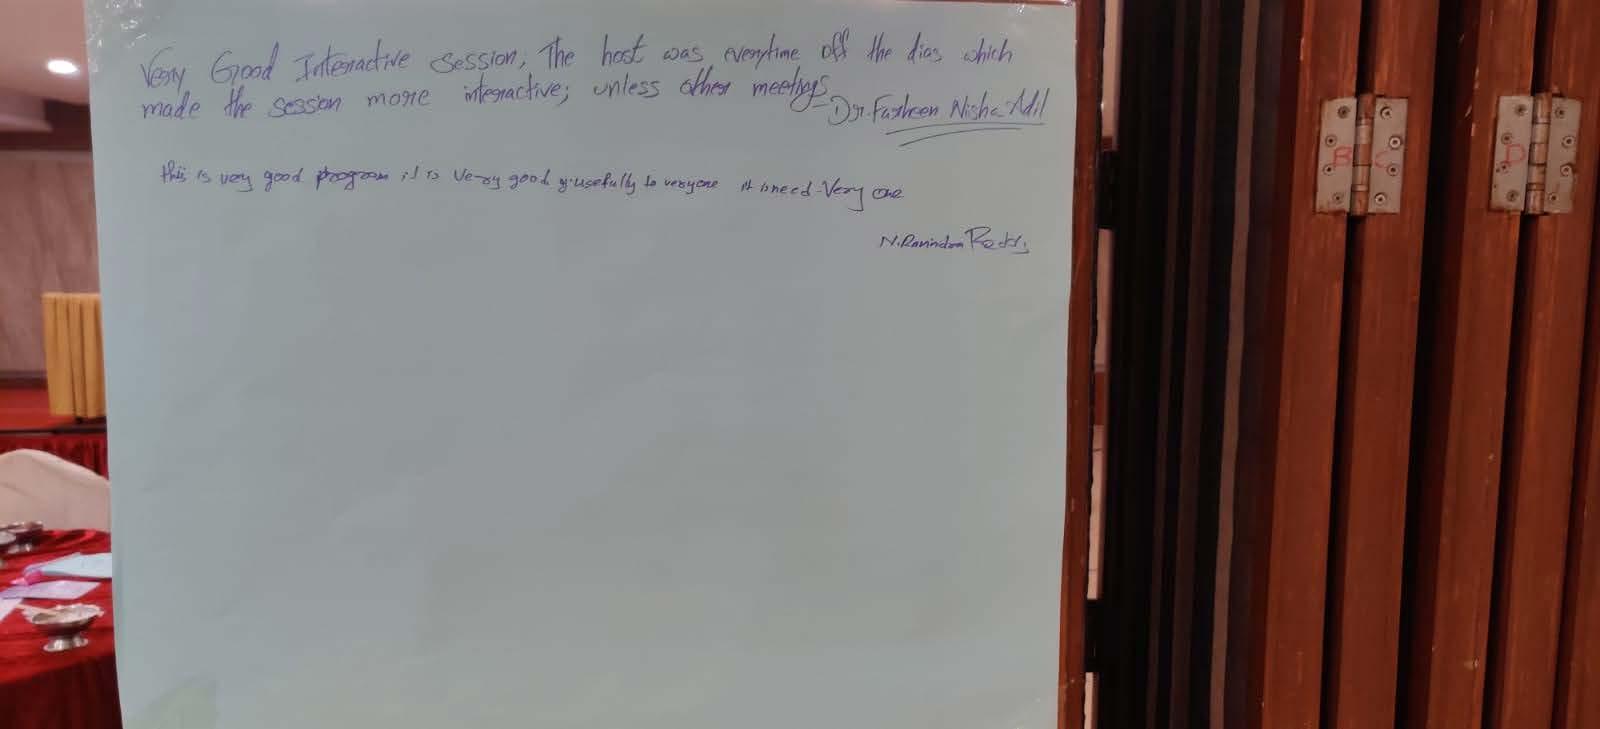 Very Good Interactive session, The host was everytime off the dias which
made the session more interactive; unless other meetings
- Dr. Farheen Nisha Adil
this is very good program it is very good & usefully to veryone it is need Very one
N. Ravindra Reddy
B C
D